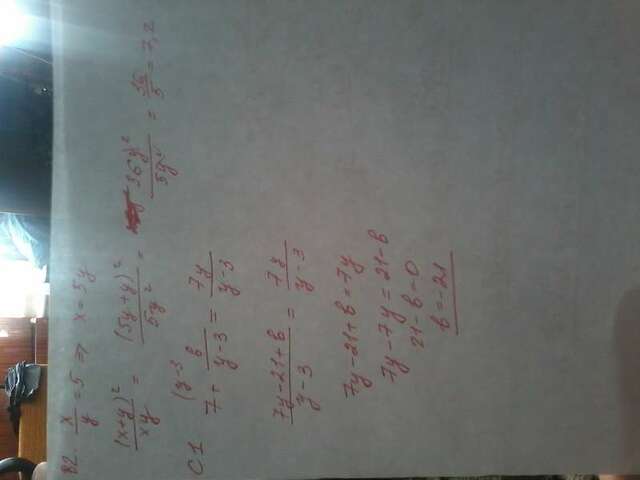 B2. x/y = 5 => x = 5y
(x+y)²/xy = (5y+y)²/5y² = 36y²/5y² = 36/5 = 7,2
(y-3
C1 7 + b/y-3 = 7y/y-3
7y-21+b/y-3 = 7y/y-3
7y-21+b=7y
7y-7y=21-b
21-b=0
b=-21